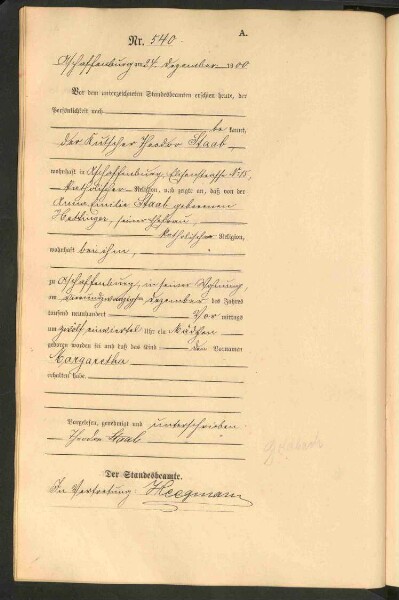 A.
Nr. 540.
Aschaffenburg am 24. Dezember 1900
Vor dem unterzeichneten Standesbeamten erschien heute, der
Persönlichkeit nach
be kannt,
der Kutscher Theodor Staab,
wohnhaft in Aschaffenburg,
katholischer Religion, und zeigte an, daß von der
Anna Emilie Staab geborenen
Hettinger, seiner Ehefrau,
katholischer Religion,
wohnhaft bei ihm,
zu Aschaffenburg, in seiner Wohnung,
am vierundzwanzigsten Dezember des Jahres
tausend neunhundert Vor mittags
um zwölf einviertel Uhr ein Mädchen
geboren worden sei und daß das Kind den Vornamen
Margaretha
erhalten habe.
Vorgelesen, genehmigt und unterschrieben
Theodor Staab
Der Standesbeamte.
In Vertretung: Heegmann